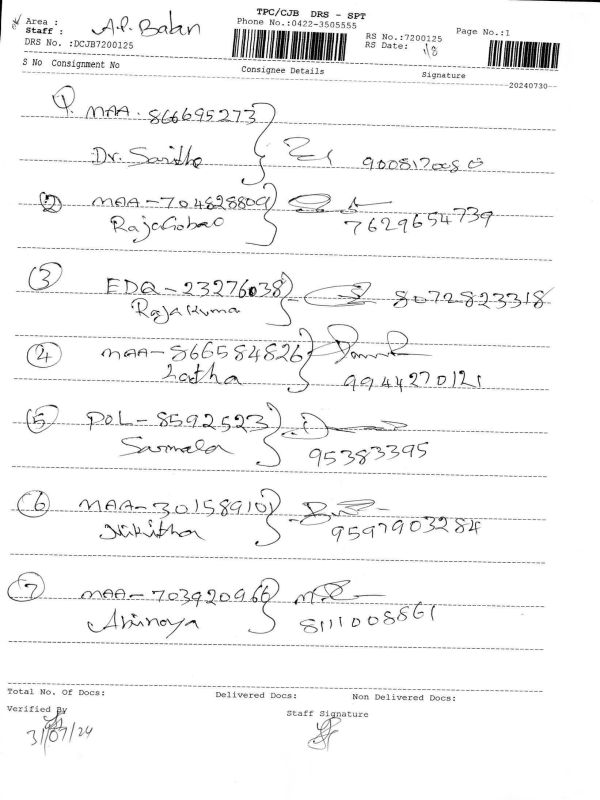 TPC/CJB DRS - SPT
Area :
Phone No.:0422-3505555
Page No.:1
Staff : A.P. Balan
RS No.:7200125
DRS No. :DCJB7200125
RS Date: 1/8
S No Consignment No Consignee Details Signature 20240730
1. MAA - 866695273
Dr. Saritha 900817008 0
2 MAA-704828809
RajaGobao 7629654739
3 EDQ-23276038 8072823318
Rajakuma
4 MAA-866584826
Latha 9944270121
5 POL-8592523
Sarmala 95383395
6 MAA-301589101
Nikitha 9597903284
7 MAA-703920966
Abinaya 8111008861
Total No. Of Docs: Delivered Docs: Non Delivered Docs:
Verified By Staff Signature
31/07/24